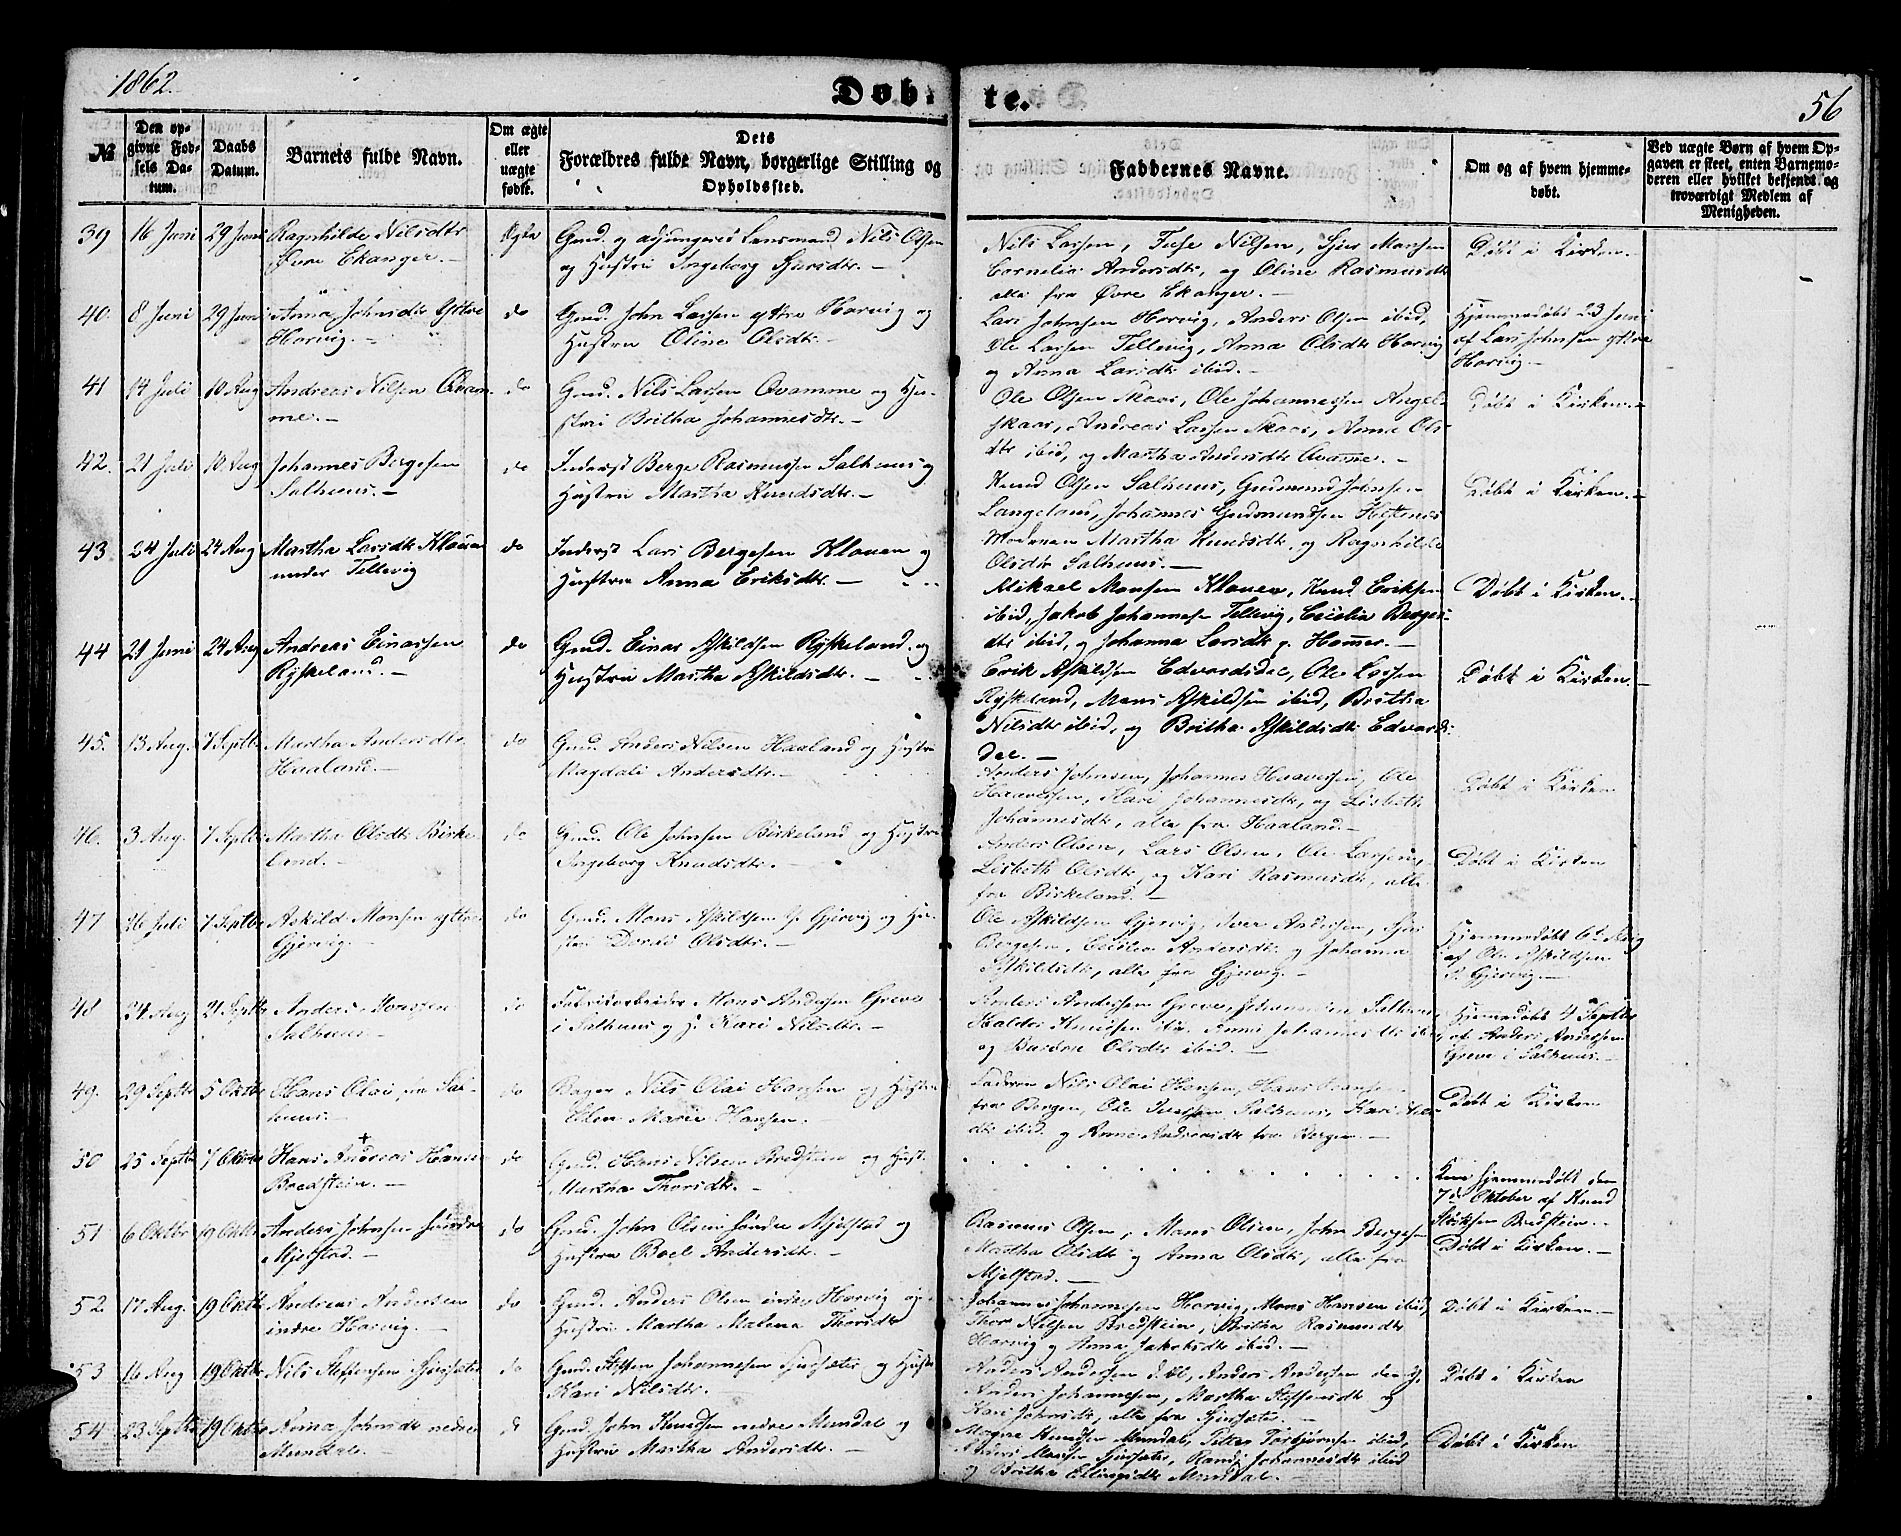 1862.
Døb- te.
56
№
Den op-
givne Fød-
sels Da-
tum.
Daabs
Datum.
Barnets fulde Navn.
Om ægte
eller
uægte
født.
Dets
Forældres fulde Navn, borgerlige Stilling og
Opholdssted.
Faddernes Navne.
Om og af hvem hjemme-
døbt.
Ved uægte Børn af hvem Op-
gaven er skeet, enten Barnemo-
deren eller hvilket bekjendt og
troværdigt Medlem af
Menigheden.
39 16 Juni 29 Juni Ragnhilde Nilsdtr
Øvre Ekanger.-
Ægte
Gmd. og adjungeret Lensmand Nils Olsen
og Hustru Ingeborg Sjursdtr.-
Nils Larsen, Nilsen, Sjur Monsen
Cornelia Andersdtr, og Oline Rasmusdtr
alle fra Øvre Ekanger.-
Døbt i Kirken.
40. 8 Juni 29 Juni Anna Johnsdtr Yttre
Horvig.-
do
Gmd. John Larsen yttre Horvig og
Hustru Oline Olsdtr.-
Lars Johnsen Horvig, Anders Olsen ibid,
Ole Larsen Tellevig, Anna Olsdtr Horvig
og Anna Larsdtr ibid.-
Hjemmedøbt 23 Juni
af Lars Johnsen yttre
Horvig.-
41 14 Juli 10 Aug Andreas Nilsen Qvam-
me.-
do
Gmd. Nils Larsen Qvamme og Hu-
stru Britha Johannesdtr.-
Ole Olsen Skaar, Ole Johannessen Angel-
skaar, Andreas Larsen Skaar, Anna Ols-
dtr ibid, og Martha Andersdtr Qvamme.-
Døbt i Kirken.-
42. 21 Juli 10 Aug Johannes Bergesen
Salhuus.-
do
Inderst Berge Rasmussen Salhuus og
Hustru Martha Knudsdtr.-
Knud Olsen Salhuus, Gudmund Johnsen
Langeland, Johannes Gudmundsen Hetlenes
Moderen Martha Knudsdtr, og Ragnhilde
Olsdtr Salhuus.-
Døbt i Kirken.-
43. 24 Juli 24 Aug Martha Larsdtr Klouen
under Tellevig
do
Inderst Lars Bergesen Klouen og
Hustru Anna Eriksdtr.-
Mikael Monsen Klouen, Knud Eriksen
ibid, Jakob Johannesen Tellevig, Cecilia Berges-
dtr ibid, og Johanna Larsdtr
Døbt i Kirken.-
44 21 Juni 24 Aug Andreas Einarsen
Ryskeland.-
do
Gmd. Einar Askildsen Ryskeland og
Hustru Martha Askildsdtr.-
Erik Askildsen Edvardsdal, Ole Larsen
Ryskeland, Mons Askildsen ibid, Britha
Nilsdtr ibid, og Britha Askildsdtr Edvards-
dal.-
Døbt i Kirken.-
45. 13 Aug. 7 Septbr Martha Andersdtr
Haaland.-
do
Gmd. Anders Nilsen Haaland og Hustru
Magdali Andersdtr.-
Anders Johnsen, Johannes Haavessen, Ole
Haavessen, Kari Johannesdtr, og Lisbeth
Johannesdtr, alle fra Haaland.-
Døbt i Kirken
46. 3 Aug. 7 Septbr Martha Olsdtr Birke-
land.-
do
Gmd. Ole Johnsen Birkeland og Hustru
Ingeborg Knudsdtr.-
Anders Olsen, Lars Olsen, Ole Larsen,
Lisbeth Olsdtr, og Kari Rasmusdtr, alle
fra Birkeland.-
Døbt i Kirken
47 26 Juli 7 Septbr Askild Monsen yttre
Gjervig.-
do
Gmd. Mons Askildsen y. Gjervig og Hu-
stru Dordi Olsdtr.-
Ole Askildsen Gjervig, Iver Andersen,
Bergesen, Cecilia Andersdtr og Johanna
Askildsdtr, alle fra Gjervig.-
Hjemmedøbt 6te Aug
af Ole Askildsen
Y. Gjervig.-
48 24 Aug 21 Septbr Anders Monsen
Salhuus.-
do
Fabrikarbeider Mons Andersen Greve
i Salhuus og H. Kari Nilsdtr.-
Anders Andersen Greve, Salhuus,
Haldor Knudsen ibid, Anna Johannesdtr ibid
og Olsdtr ibid.-
Hjemmedøbt 4 Septbr
af Anders Andersen
Greve i Salhuus.-
49. 29 Septbr 5 Oktbr Hans Olai fra Sal-
huus.-
do
Bager Nils Olai Hansen og Hustru
Ellen Marie Hansen.
Faderen Nils Olai Hansen, Hans Hansen
fra Bergen, Ole Iversen Salhuus, Kari
dtr ibid og Anne Andreasdtr fra Bergen.-
Døbt i Kirken
50 25 Septbr 7 Oktober Hans Andreas Hansen
Bredstein.-
do
Gmd. Hans Nilsen Bredstein og Hust.
Martha Thorsdtr.-
Kun hjemmedøbt den
7de Oktober af Knud
Bredstein.-
51 6 Oktbr 19 Oktbr Anders Johnsen søndre
Mjelstad.-
do
Gmd. John Olsen søndre Mjelstad og
Hustru Boel Andersdtr.-
Rasmus Olsen, Mons Olsen, John Bergesen
Martha Olsdtr og Anna Olsdtr, alle fra
Mjelstad.-
Døbt i Kirken.-
52. 17 Aug. 19 Oktbr Andreas Andersen
indre Horvig.-
do
Gmd. Anders Olsen indre Horvig og
Hustru Martha Malena Thorsdtr
Johannes Johannesen Horvig, Mons Hansen ibid,
Thor Nilsen Bredstein, Britha Rasmusdtr
Horvig og Anna Jakobsdtr ibid.-
Døbt i Kirken.-
53 16 Aug 19 Oktbr Nils Steffensen Sjursæter
do
Gmd. Steffen Johannesen Sjursæter og Hustru
Kari Nilsdtr.
Anders Andersen d. Æl, Anders Andersen den y.
Anders Johannesen, Martha Steffensdtr og
Kari Johnsdtr, alle fra Sjursæter.-
Døbt i Kirken
54. 23 Septbr 19 Oktbr Anna Johnsdtr nedre
Mundal.
do
Gmd. John Knudsen nedre Mundal og
Hustru Martha Andersdtr.-
Mogne Knudsen Mundal, Peter Torbjørnsen ibid,
Anders Monsen Sjursæter, Randi Johannesdtr ibid
og Britha Ellingsdtr Mundal.-
Døbt i Kirken